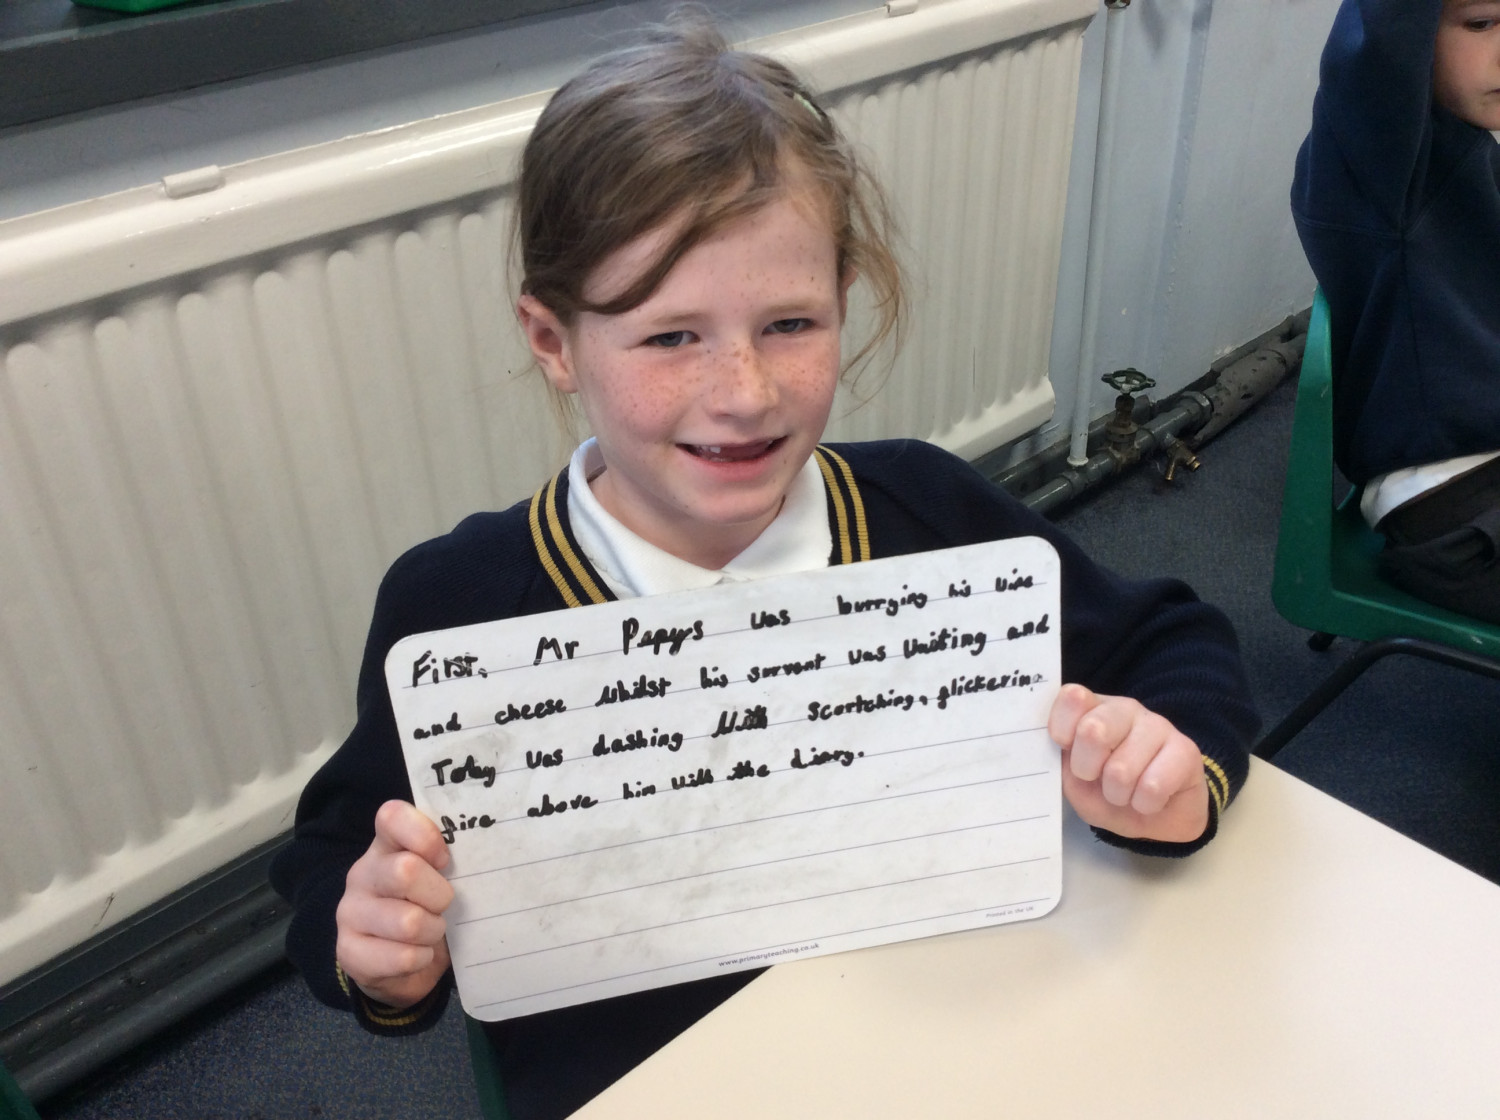 First, Mr Pepys was burrying his wine
and cheese whilst his servant was waiting and
Toby was dashing with scortching, flickering
fire above him with the diary.
Printed in the UK
www.primaryteaching.co.uk